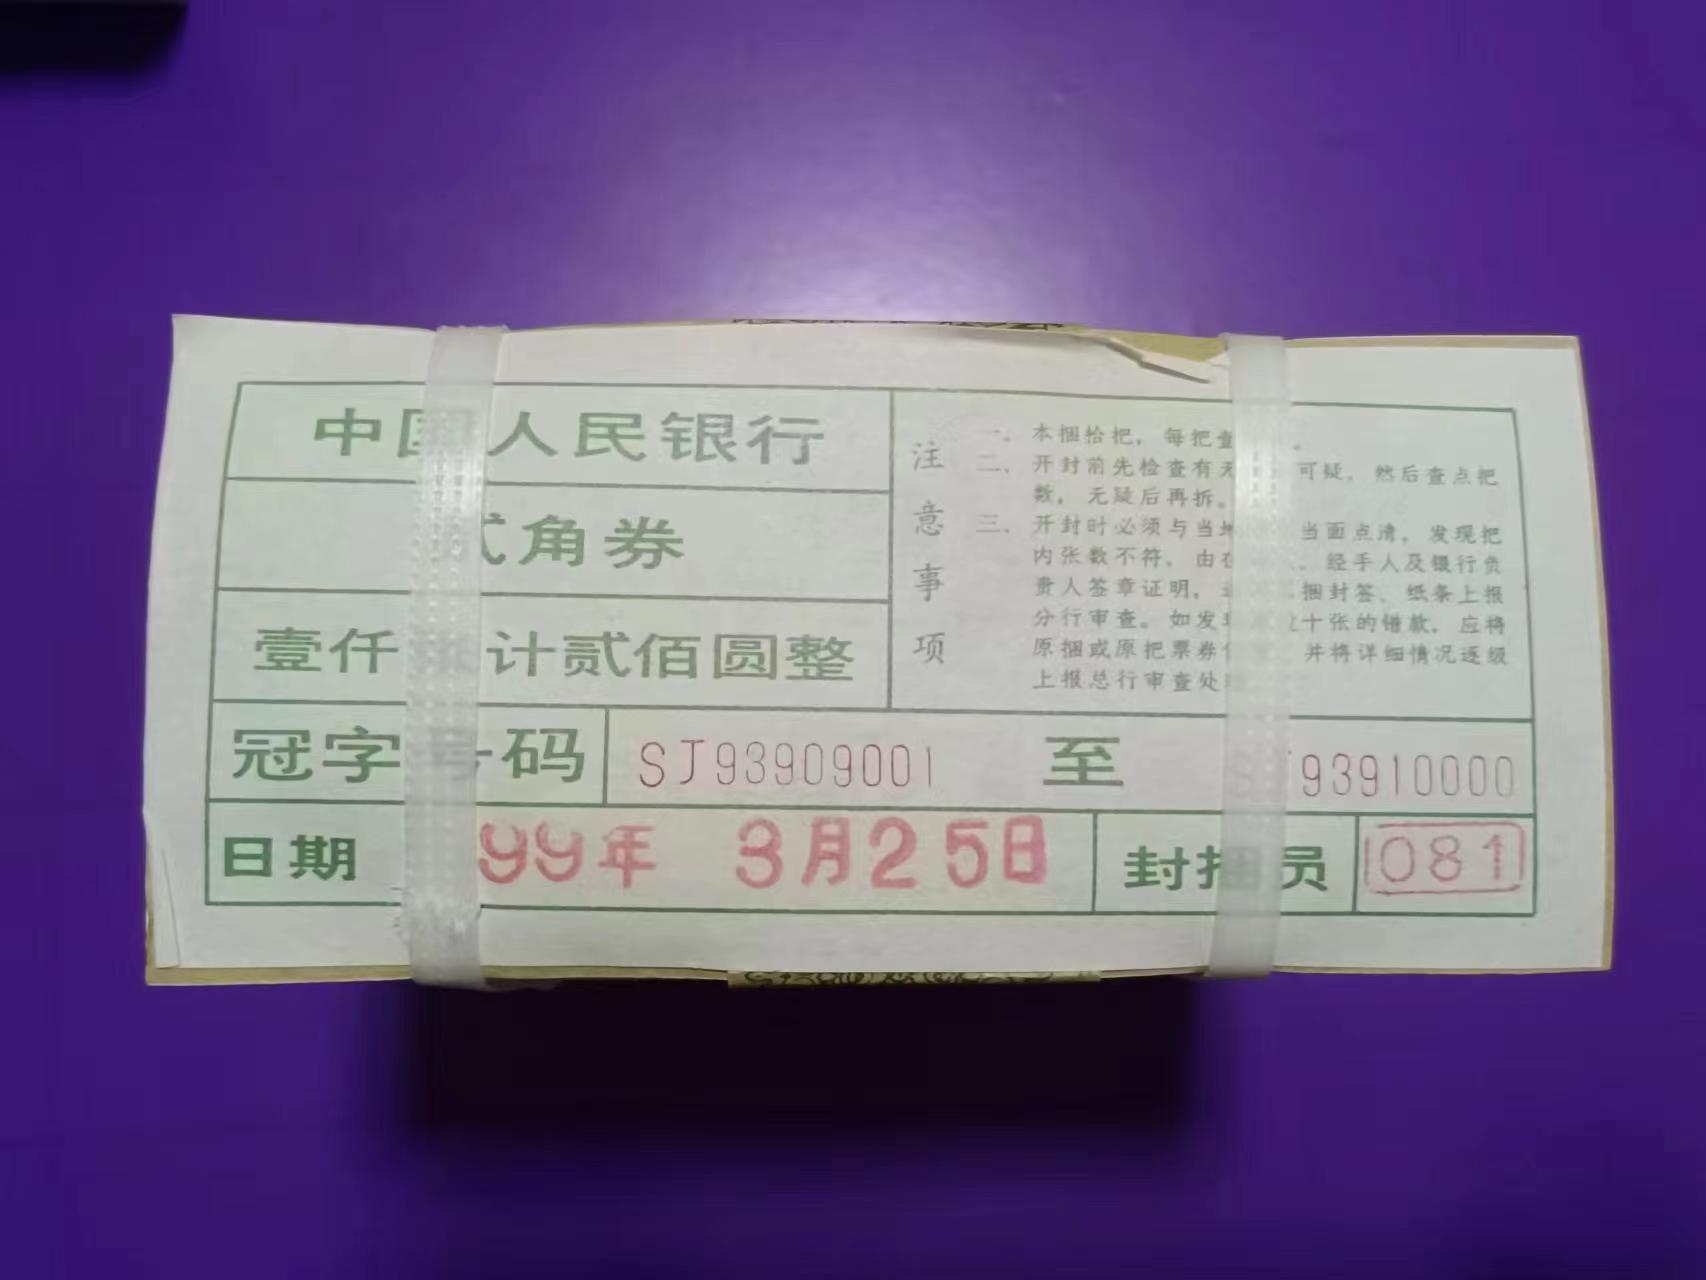 中国人民银行
贰角券
壹仟张计贰佰圆整
注意事项
一、本捆拾把，每把壹
二、开封前先检查有无 可疑，然后查点把
数，无疑后再拆。
三、开封时必须与当 当面点清，发现把
内张数不符，由在 、经手人及银行负
责人签章证明， 捆封签、纸条上报
分行审查。如发现 十张的错款，应将
原捆或原把票券 并将详细情况逐级
上报总行审查处
冠字号码 SJ93909001 至 SJ93910000
日期 99年 3月25日 封捆员 081